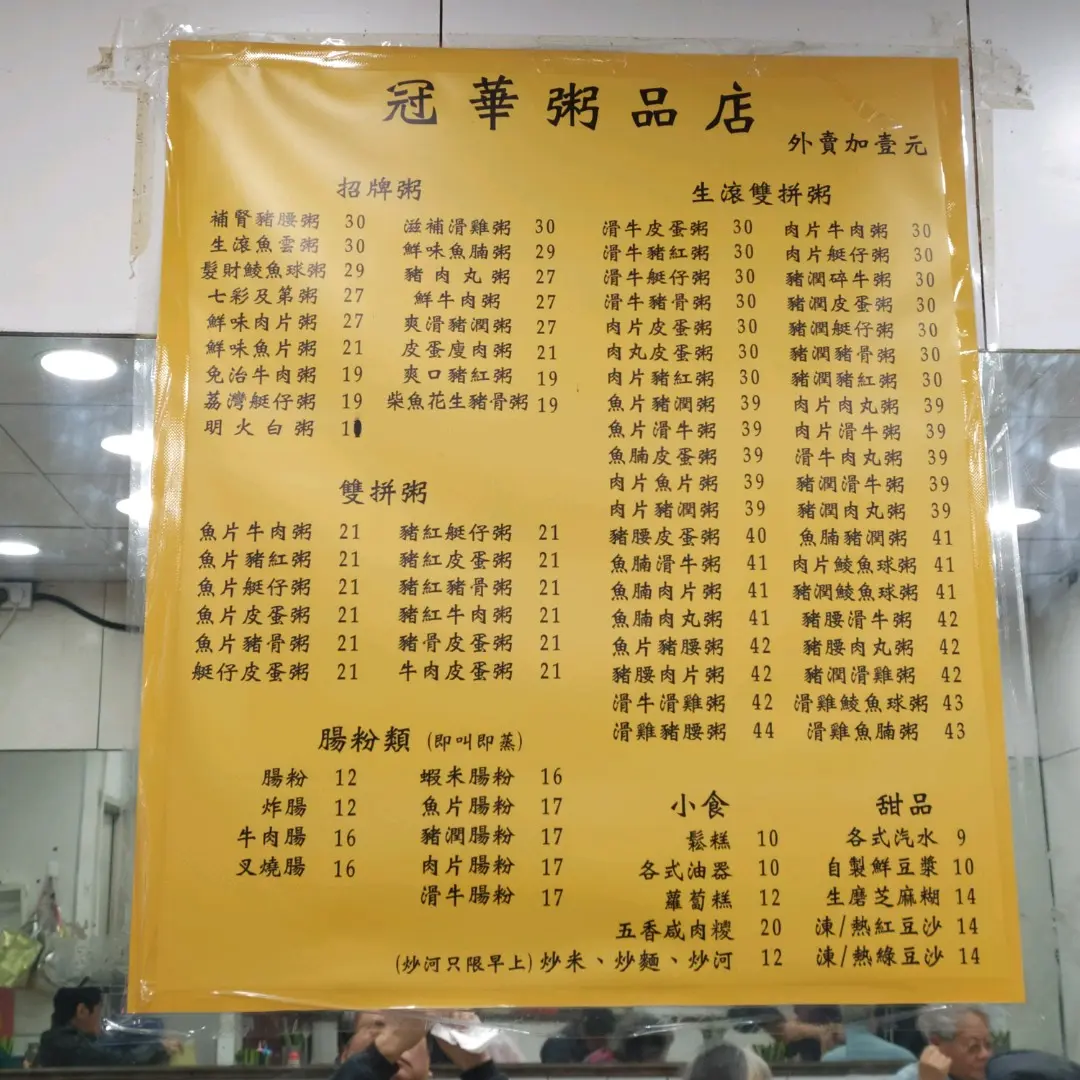 冠華粥品店
外賣加壹元
招牌粥
補腎豬腰粥 30
生滾魚雲粥 30
髮財鯪魚球粥 29
七彩及第粥 27
鮮味肉片粥 27
鮮味魚片粥 21
免治牛肉粥 19
荔灣艇仔粥 19
明火白粥
滋補滑雞粥 30
鮮味魚腩粥 29
豬肉丸粥 27
鮮牛肉粥 27
爽滑豬潤粥 27
皮蛋廋肉粥 21
爽口豬紅粥 19
柴魚花生豬骨粥 19
雙拼粥
魚片牛肉粥 21
魚片豬紅粥 21
魚片艇仔粥 21
魚片皮蛋粥 21
魚片豬骨粥 21
艇仔皮蛋粥 21
豬紅艇仔粥 21
豬紅皮蛋粥 21
豬紅豬骨粥 21
豬紅牛肉粥 21
豬骨皮蛋粥 21
牛肉皮蛋粥 21
腸粉類 (即叫即蒸)
腸粉 12
炸腸 12
牛肉腸 16
叉燒腸 16
蝦米腸粉 16
魚片腸粉 17
豬潤腸粉 17
肉片腸粉 17
滑牛腸粉 17
生滾雙拼粥
滑牛皮蛋粥 30
滑牛豬紅粥 30
滑牛艇仔粥 30
滑牛豬骨粥 30
肉片皮蛋粥 30
肉丸皮蛋粥 30
肉片豬紅粥 30
魚片豬潤粥 39
魚片滑牛粥 39
魚腩皮蛋粥 39
肉片魚片粥 39
肉片豬潤粥 39
豬腰皮蛋粥 40
魚腩滑牛粥 41
魚腩肉片粥 41
魚腩肉丸粥 41
魚片豬腰粥 42
豬腰肉片粥 42
滑牛滑雞粥 42
滑雞豬腰粥 44
肉片牛肉粥 30
肉片艇仔粥 30
豬潤碎牛粥 30
豬潤皮蛋粥 30
豬潤艇仔粥 30
豬潤豬骨粥 30
豬潤豬紅粥 30
肉片肉丸粥 39
肉片滑牛粥 39
滑牛肉丸粥 39
豬潤滑牛粥 39
豬潤肉丸粥 39
魚腩豬潤粥 41
肉片鯪魚球粥 41
豬潤鯪魚球粥 41
豬腰滑牛粥 42
豬腰肉丸粥 42
豬潤滑雞粥 42
滑雞鯪魚球粥 43
滑雞魚腩粥 43
小食
鬆糕 10
各式油器 10
蘿蔔糕 12
五香咸肉糉 20
(炒河只限早上) 炒米、炒麵、炒河 12
甜品
各式汽水 9
自製鮮豆漿 10
生磨芝麻糊 14
凍/熱紅豆沙 14
凍/熱綠豆沙 14